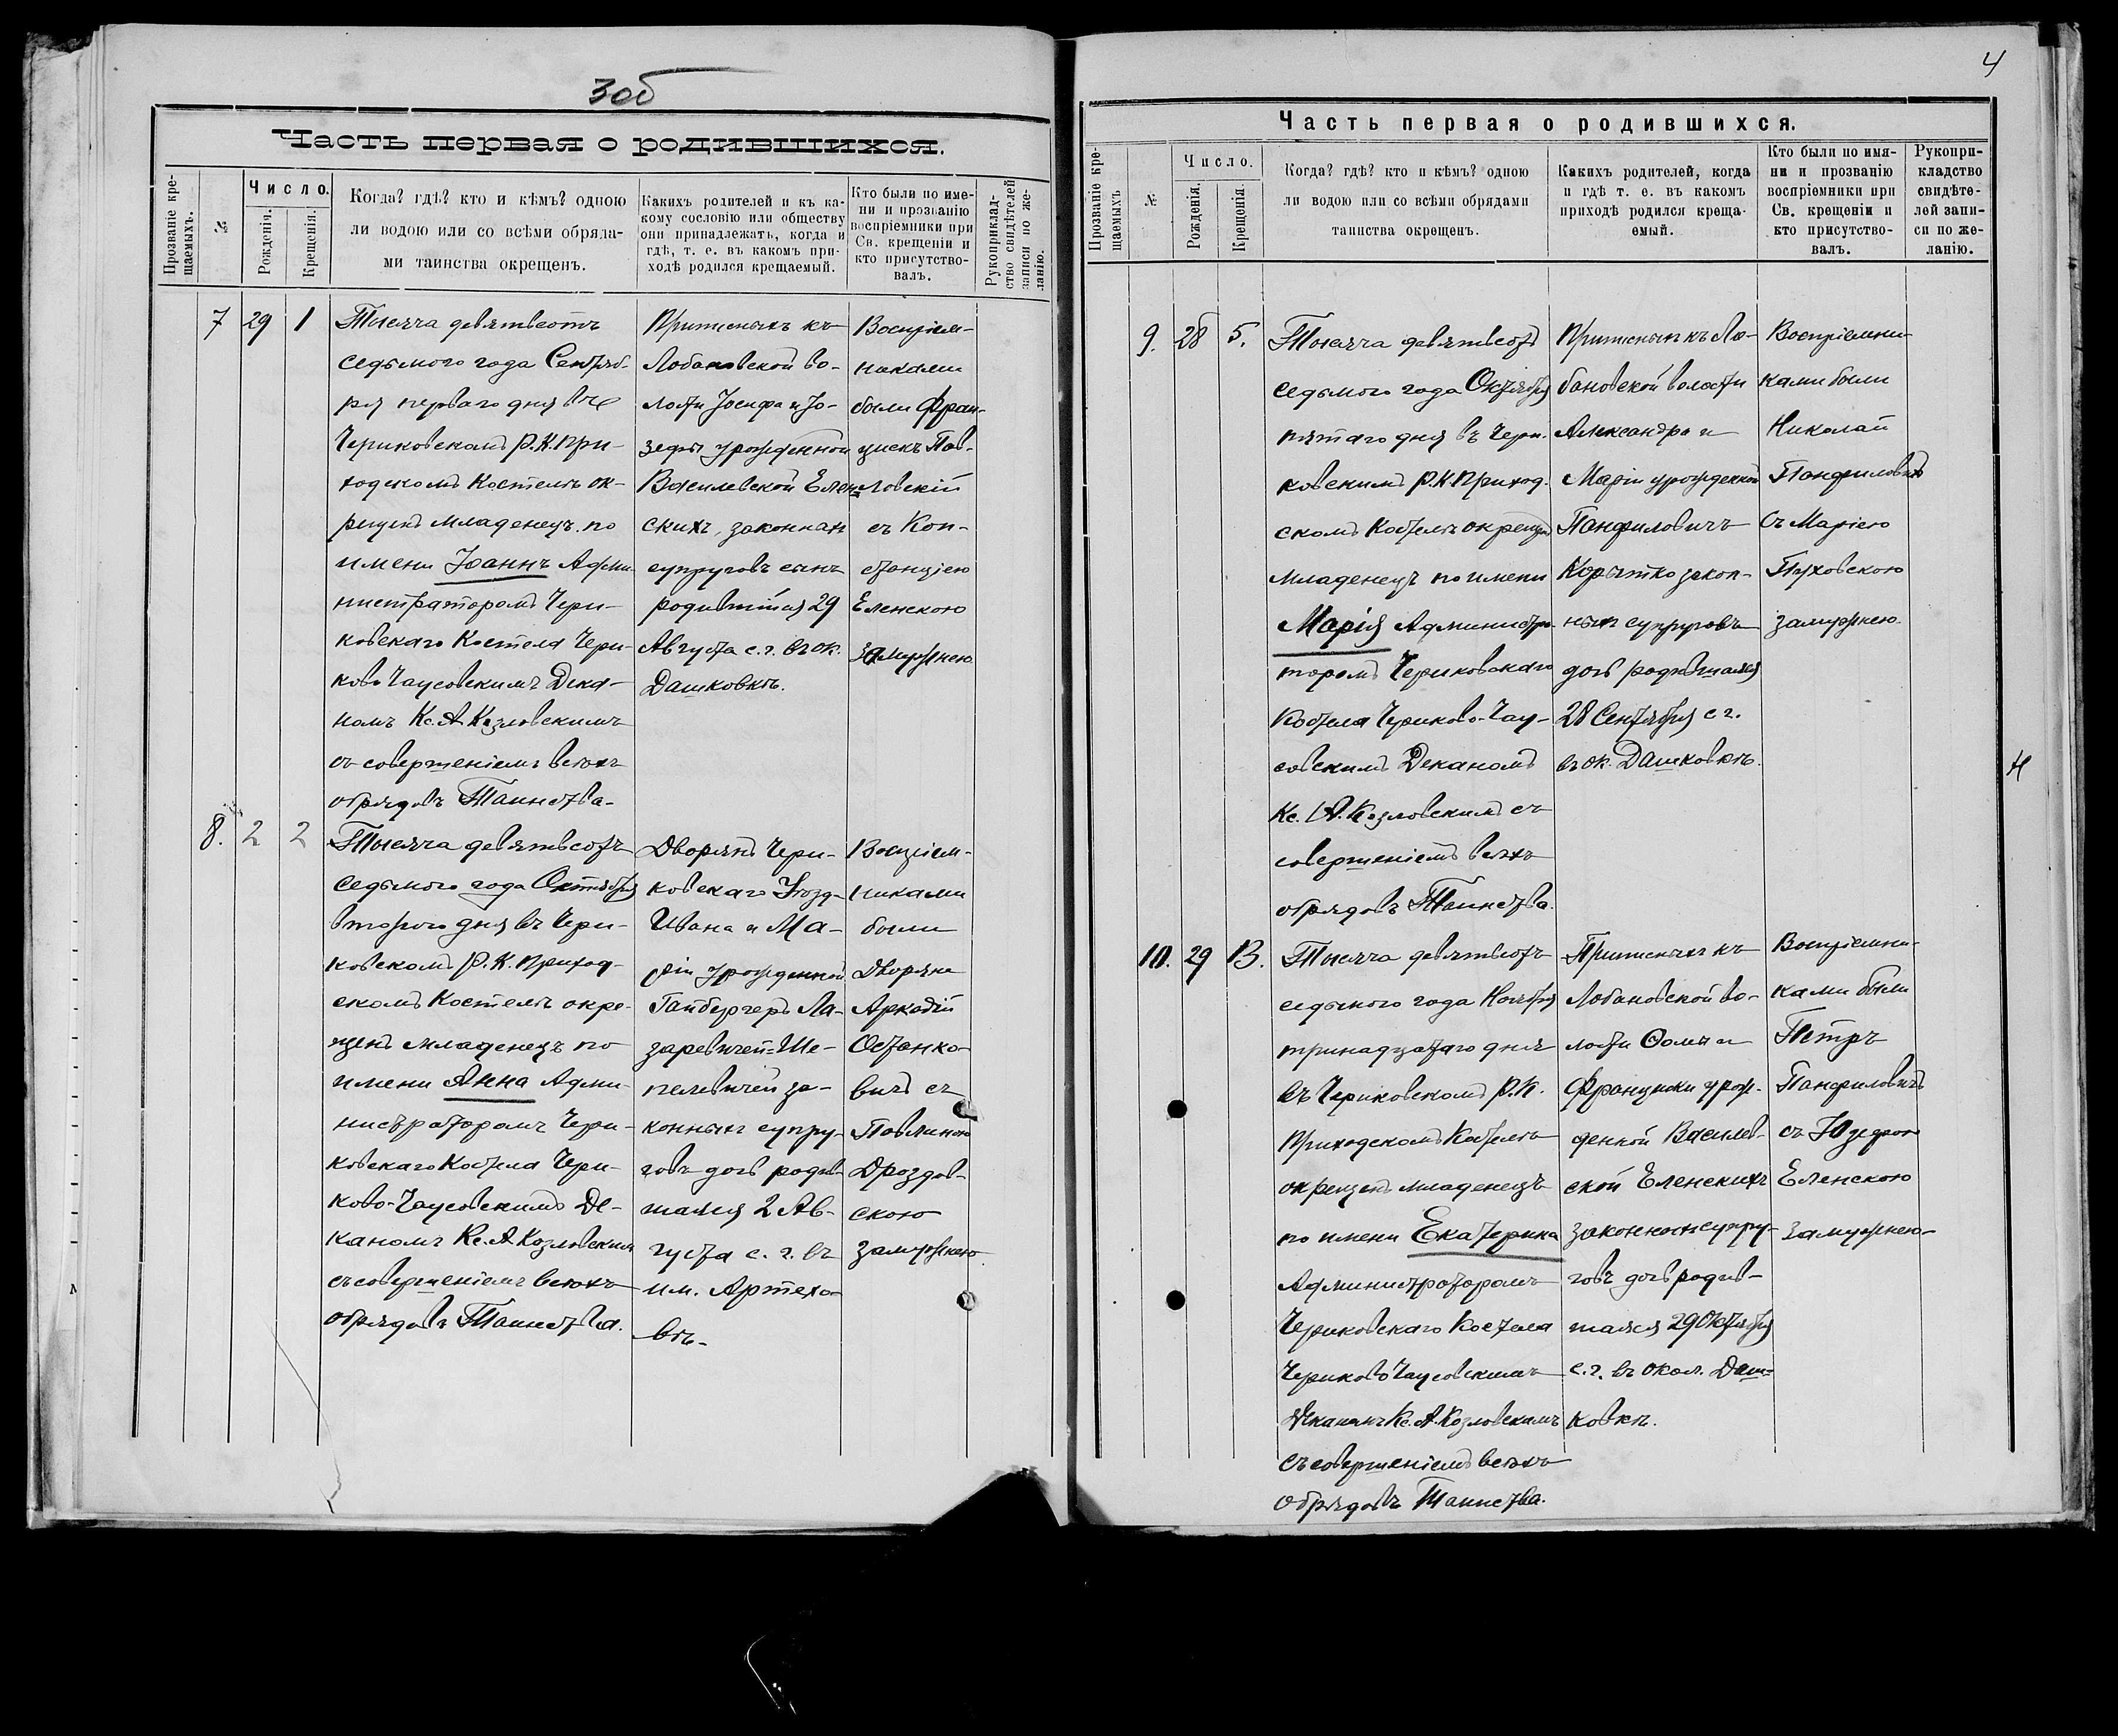 3об
Часть первая о родившихся.
Прозваніе кре-
щаемыхъ.
№
Число.
Рожденія.
Крещенія.
Когда? гдѣ? кто и кѣмъ? одною
ли водою или со всѣми обряда-
ми таинства окрещенъ.
Какихъ родителей и къ ка-
кому сословію или обществу
они принадлежатъ, когда и
гдѣ, т. е. въ какомъ при-
ходѣ родился крещаемый.
Кто были по име-
ни и прозванію
воспріемники при
Св. крещеніи и
кто присутство-
валъ.
Рукоприклад-
ство свидѣтелей
записи по же-
ланію.
7
29
1
Тысяча девятьсотъ
седьмого года Сентяб-
ря перваго дня въ
Чериковскомъ Р.К. При-
ходскомъ Костелѣ ок-
рещенъ младенецъ по
имени Іоаннъ Адми-
нистраторомъ Чери-
ковскаго Костела Чери-
ково Чаусовскимъ Дека-
номъ Кс. А Козловскимъ
съ совершеніемъ всѣхъ
обрядовъ Таинства.
Приписныхъ къ
Лобановской во-
лости Іосифа и Іо-
зефы урожденной
Василевской Елен-
скихъ, законныхъ
супруговъ сынъ
родившійся 29
Августа с. г. въ ок.
Дашковкѣ.
Воспріем-
никами
были Фран-
цискъ Пав-
ловскій
съ Кон-
станціею
Еленскою
замужнею
8.
2
2
Тысяча девятьсотъ
седьмого года Октября
второго дня въ Чери-
ковскомъ Р. К. Приход-
скомъ Костелѣ окре-
щенъ младенецъ по
имени Анна Адми-
нистраторомъ Чери-
ковскаго Костела Чери-
ково-Чаусовскимъ Де-
каномъ Кс. А Козловскимъ
съ совершеніемъ всѣхъ
обрядовъ Таинства.
Дворянъ Чери-
ковскаго Уѣзд-
Ивана и Ма-
ріи урожденной
Гайбергеръ Ла-
заревичей-Ше-
пелевичей за-
конныхъ супру-
говъ дочь родив-
шаяся 2 Ав-
густа с. г. въ
им. Артехо-
вѣ.
Воспріем-
никами
были
Дворяне
Аркадій
Останко-
вичъ съ
Павлиною
Дроздов-
скою
замужнею.
4
Часть первая о родившихся.
Прозваніе кре-
щаемыхъ
№
Число.
Рожденія.
Крещенія.
Когда? гдѣ? кто и кѣмъ? одною
ли водою или со всѣми обрядами
таинства окрещенъ.
Какихъ родителей, когда
и гдѣ т. е. въ какомъ
приходѣ родился креща-
емый.
Кто были по имя-
ни и прозванію
воспріемники при
Св. крещеніи и
кто присутство-
валъ.
Рукопри-
кладство
свидѣте-
лей запи-
си по же-
ланію.
9.
28
5.
Тысяча девятьсотъ
седьмого года Октября
пятаго дня въ Чери-
ковскимъ Р.К. Приход-
скомъ Костелѣ окрещенъ
младенецъ по имени
Марія Администра-
торомъ Чериковскаго
Костела Чериково-Чау-
совскимъ Деканомъ
Кс. А. Козловскимъ съ
совершеніемъ всѣхъ
обрядовъ Таинства.
Приписныхъ къ Ло-
бановской волости
Александра и
Маріи урожденной
Панфиловичъ
Корытко закон-
ныхъ супруговъ
дочь родившаяся
28 Сентября с г.
въ ок. Дашковкѣ.
Воспріемни-
ками были
Николай
Панфиловичъ
съ Маріею
Пуховскою
замужнею.
10.
29
13.
Тысяча девятьсотъ
седьмого года Ноября
тринадцатаго дня
въ Чериковскомъ Р.К.
Приходскомъ Костелѣ
окрещенъ младенецъ
по имени Екатерина
Администраторомъ
Чериковскаго Костела
Чериково Чаусовскимъ
Деканомъ Кс. А. Козловскимъ
съ совершеніемъ всѣхъ
обрядовъ Таинства.
Приписныхъ къ
Лобановской во-
лости Ѳомы и
Франциски урож-
денной Василев-
ской Еленскихъ
законныхъ супру-
говъ дочь родив-
шаяся 29 Октября
с. г. въ окол. Даш-
ковкѣ.
Воспріемни-
ками были
Петръ
Панфиловичъ
съ Юзефою
Еленскою
замужнею